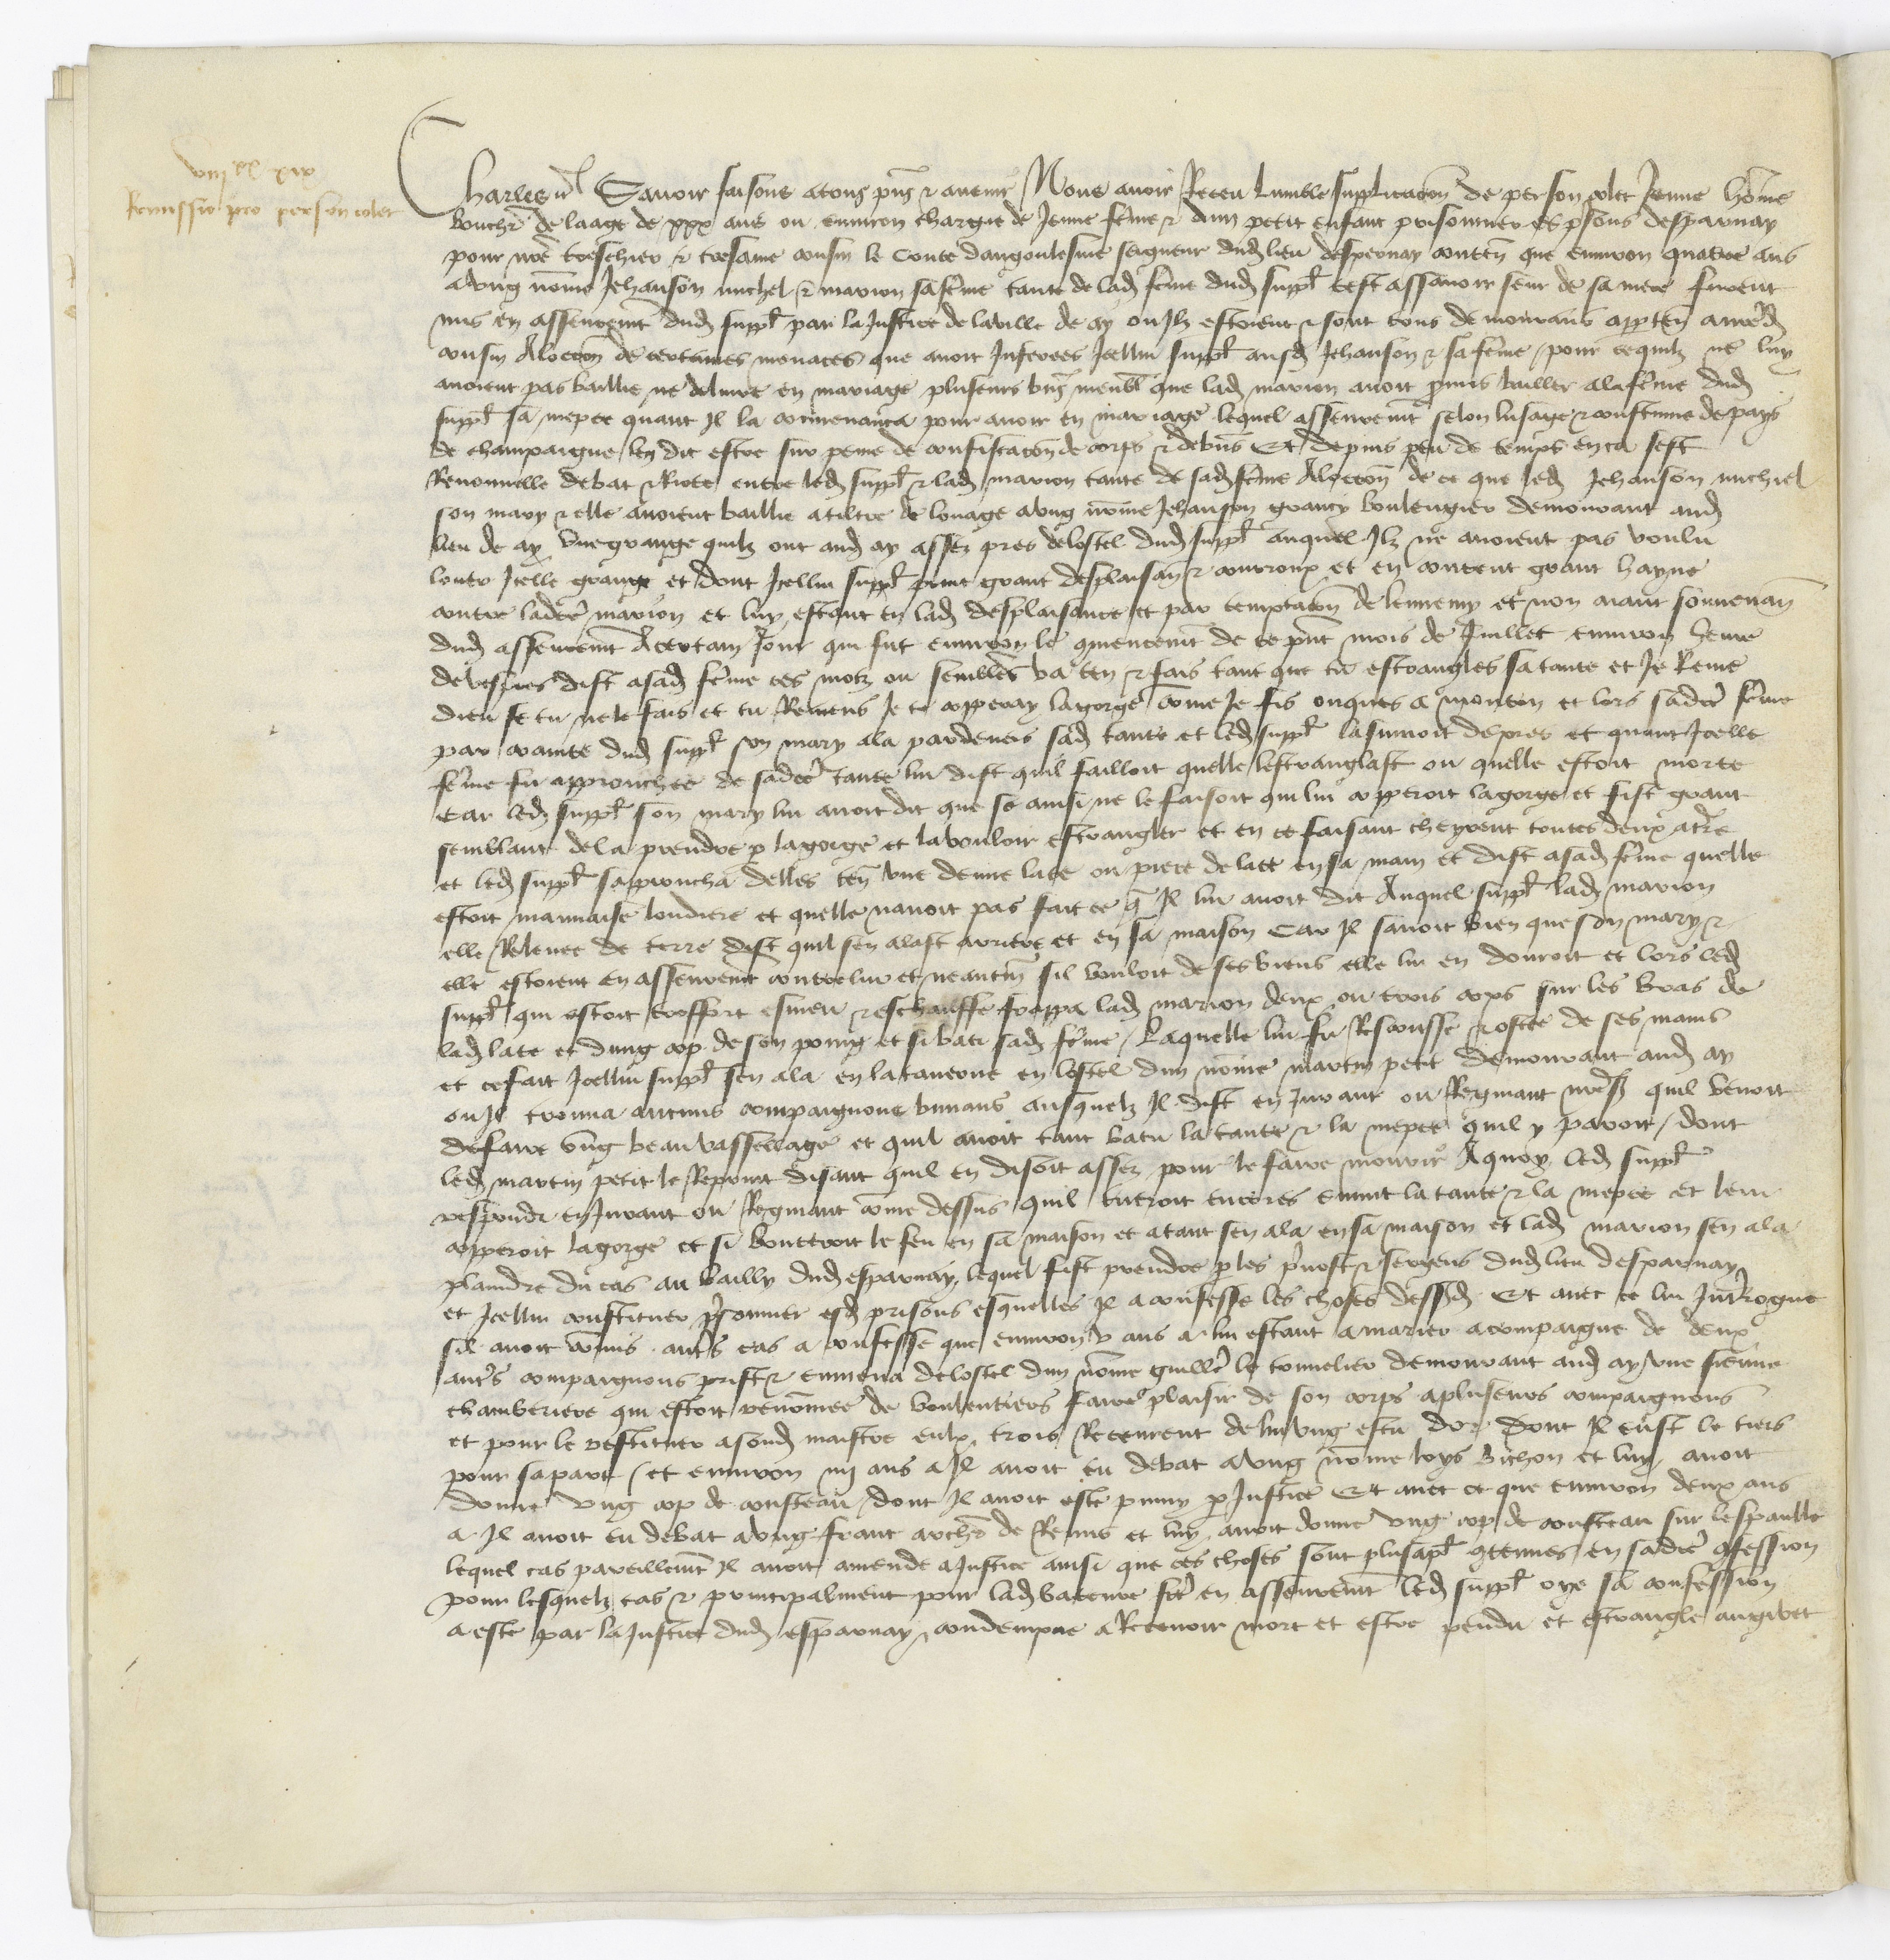 viii xx xix
Remissio pro person colet
Charles etc Savoir faisons a tous pns et avenir Nous avoir Receu lumble supplicacion de person colet Jeune home
bouchr de laage de xxx ans ou environ chargie de Jeune feme et dun petit enfant prisonnier es prisons desparnay
pour nre treschier et tresame cousin le Conte dangoulesme seigneur dudit lieu desparnay conten que environ quatre ans
a ung nome Jehanson michel et marion sa feme tante de lad feme dud suppl cest assavoir seur de sa mere furent
mis en asseuremt dud suppl par la Justice de la ville de ay ou Ilz estoient et sont tous demourans
cousin A loccon de certaines menaces que avoit Inferees Icellui suppl ausd Jehanson et sa feme pour ce quilz ne luy
avoient pas baillie ne delivre en mariage pluseurs bns meubl que lad marion avoit pmis bailler a la feme dud
suppl sa niepce quant Il la convenanca pour avoir en mariage lequel asseuremt selon lusage et coustume de pays
de champaigne len dit estre sur peine de confiscacon de corps et de bns Et depuis peu de temps en ca sest
Renouvelle debat et Riote entre led suppl et lad marion tante de sad feme A loccon de ce que led Jehanson michiel
son mary et elle avoient baillie a tiltre de louage a ung nome Jehanson grancy boulengier demourant aud
lieu de ay une grange quilz ont aud ay assez pres de lostel dud suppl auquel Ilz ne avoient pas voulu
louer Icelle grange et dont Icellui suppl print grant desplaisan et courroux et en content grant hayne
contre ladcte marion et luy estant en lad desplaisance et par temptacon de lennemy et non aiant souvenan
dud asseuremt A certain Jour qui fut environ le comencemt de ce pnt mois de Juillet environ heure
de vespres dist a sad feme ces motz ou semblables va ten et fais tant que tu estrangles ta tante et Je Renie
dieu se tu ne le fais et tu Reviens Je te copperay la gorge come Je fis onques a mouton et lors sadcte feme
par crainte dud suppl son mary ala par devers sad tante et led suppl la suivoit de pres et quant Icelle
feme fu approuchee de sadcte tante lui dist quil failloit quelle lestranglast ou quelle estoit morte
Car led suppl son mary lui avoit dit que se ainsi ne le faisoit qui lui copperoit la gorge et fist grant
semblant de la prendre p la gorge et la vouloir estrangler et en ce faisant cheyrent toutes deux a tre
et led suppl sapproucha delles ten une demie late ou piece de late en sa main et dist a sad feme quelle
estoit mauvaise loudiere et quelle navoit pas fait ce q Il lui avoit dit Auquel suppl lad marion
elle Relevee de terre dist quil sen alast arriere et en sa maison Car Il savoit bien que son mary et
elle estoient en asseuremt contre lui et neantm sil vouloit de ses biens elle lui en donroit et lors led
suppl qui estoit trosfort esmeu et eschauffe frappa lad marion deux ou trois cops sur les bras de
lad late et dung cop de son poing et si bati sad feme laquelle lui fu Rescousse et ostee de ses mains
et ce fait Icellui suppl sen ala en la taverne en lostel dun nome martin petit demourant aud ay
ou Il trouva aucuns compaignons buvans ausquelz Il dist en Jurant ou Regniant nresr quil venoit
de faire ung beau vasselage et quil avoit tant batu la tante et la niepce quil y paroit dont
led martin petit le Reprint disant quil en disoit assez pour le faire mourir A quoy led suppl
respondi en Jurant ou Regniant come dessus quil tueroit encores ennuit la tante et la niepce et leur
copperoit la gorge et si bouteroit le feu en sa maison et atant sen ala en sa maison et lad marion sen ala
plaindre du cas au bailly dud esparnay lequel fist prendre p les prevost et sergens dud lieu desparnay
et Icellui constituer prisonnier esd prisons esquelles Il a confesse les choses dessd Et avec ce lui Interrogue
sil avoit comis autres cas a confesse que environ v ans a lui estant a marier acompaigne de deux
autres compaignons prist et emmena de lostel dun nome guillē le tonnelier demourant aud ay une sienne
chamberiere qui estoit renommee de voulentiers faire plaisir de son corps a pluseurs compaignons
et pour le restituer a sond maistre eulx trois Receurent de lui ung escu dor dont Il eust le tiers
pour sa part et environ iiii ans a Il avoit eu debat a ung nome loys bichon et luy avoit
donne ung cop de cousteau dont Il avoit este puny p Justice Et avec ce que environ deux ans
a Il avoit eu debat a ung franc archer de Reims et luy avoit donne ung cop de cousteau sur lespaulle
lequel cas pareillemt Il avoit amende a Justice ainsi que ces choses sont plus a pl contenues en sadcte confession
pour lesquelz cas et principalment pour lad bateure fcte en asseuremt led suppl oye sa confession
a este par la Justice dud esparnay condempne a Recevoir mort et estre pendu et estrangle au gibet